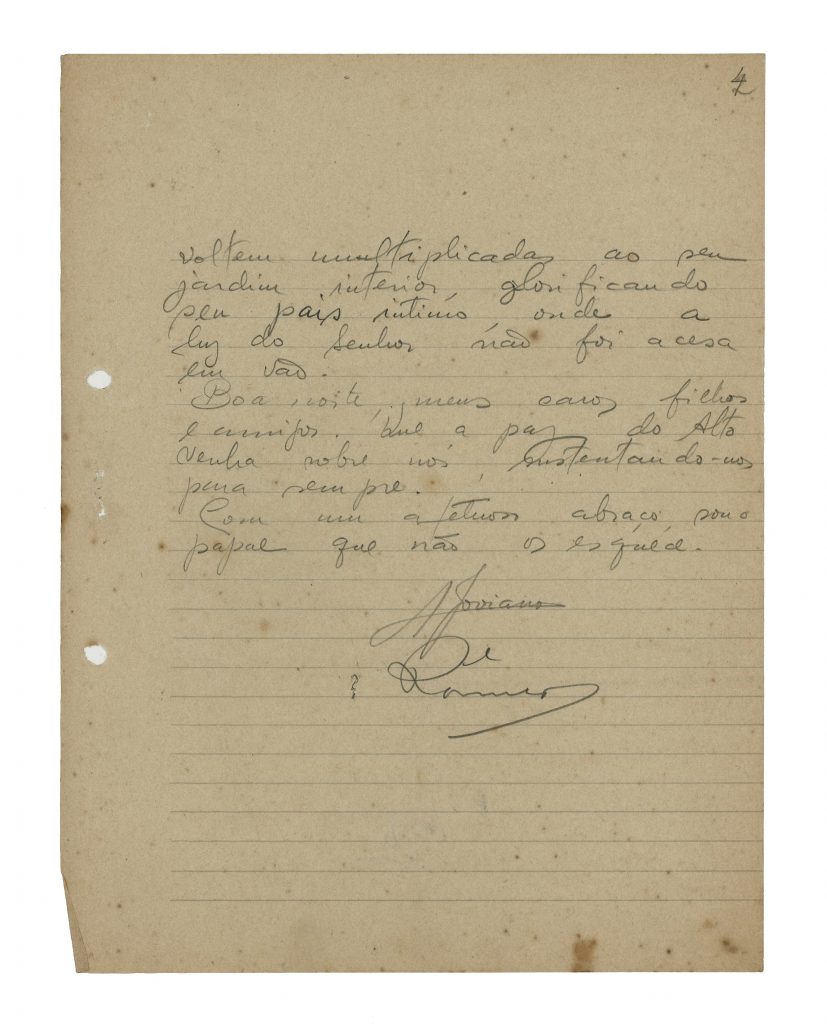 4
voltem multiplicadas ao seu
jardim interior, glorificando
seu pais intimo, onde a
luz do Senhor não foi acesa
em vão.
Boa noite, meus caros filhos
e amigos. Que a paz do Alto
venha sobre nós, sustentando-nos
para sempre.
Com um afetuoso abraço, sou o
papae que não os esquéce.
A Joviano
?